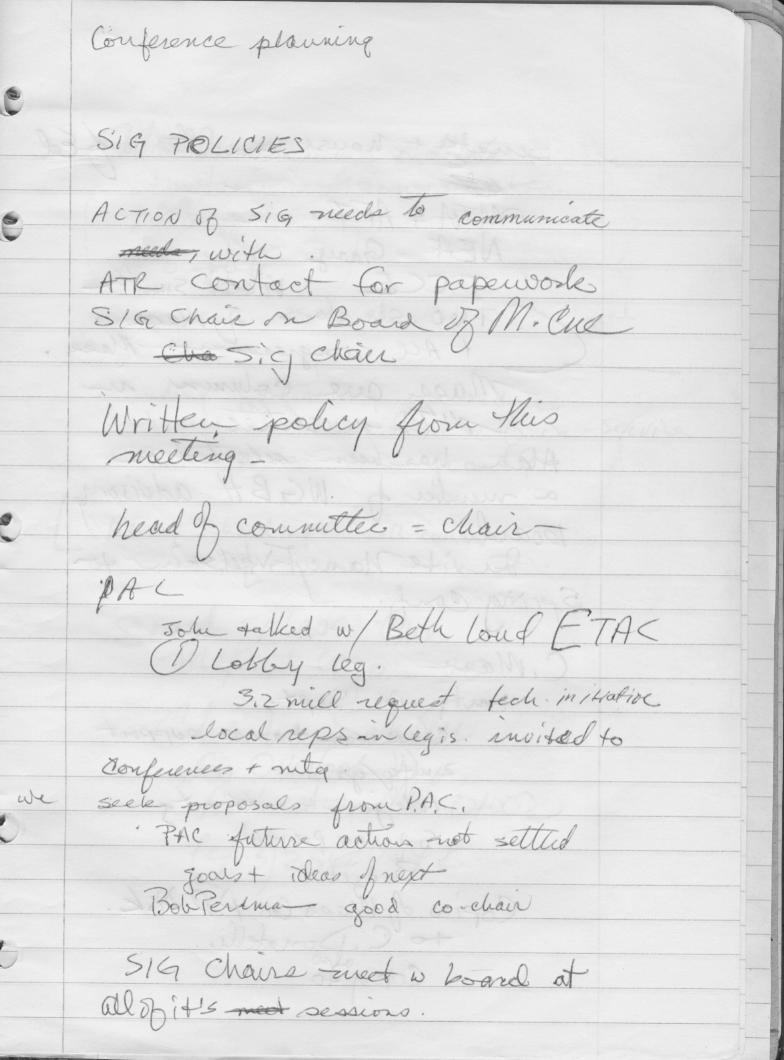 Conference planning
SIG POLICIES
ACTION of SIG needs to communicate
needs, with .
ATR contact for paperwork
SIG Chair on Board of M. Cue
Cha Sig chair
Written policy from this
meeting -
head of committee = chair
PAC
John talked w/ Beth Loud ETAC
① Lobby leg.
3.2 mill request tech. initiative
local reps in legis. invited to
conferences + mtg
we seek proposals from P.A.C.
PAC future action not settled
goals + ideas of next
Bob good co-chair
SIG Chairs meet w board at
all of it's meet sessions.